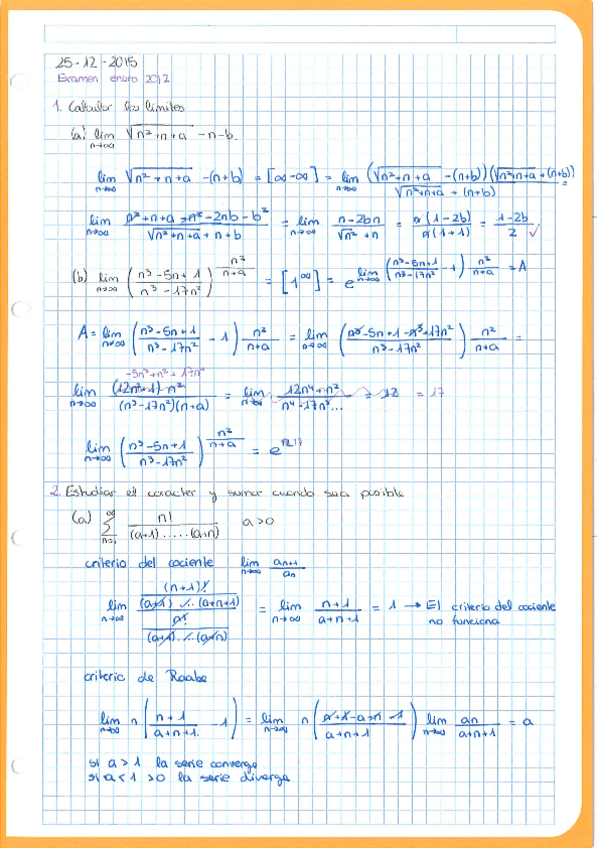 25-12-2015
Examen enero 2012
1. Calcular los límites
(a) lim n→∞ √(n²+n+a) - n - b.
lim n→∞ √(n²+n+a) - (n+b) = [∞-∞] = lim n→∞ (√(n²+n+a) - (n+b))(√(n²+n+a) + (n+b)) / (√(n²+n+a) + (n+b)) =
lim n→∞ (n²+n+a-n²-2nb-b²) / (√(n²+n+a) + n+b) = lim n→∞ (n-2bn) / (√n² + n) = n(1-2b) / n(1+1) = (1-2b)/2 ✓
(b) lim n→∞ ((n³-5n+1)/(n³-17n²))^(n²/(n+a)) = [1^∞] = e^(lim n→∞ ((n³-5n+1)/(n³-17n²) - 1) n²/(n+a)) = A
A = lim n→∞ ((n³-5n+1)/(n³-17n²) - 1) n²/(n+a) = lim n→∞ ((n³-5n+1-n³+17n²)/(n³-17n²)) n²/(n+a) =
-5n³+n²+17n⁴
lim n→∞ (12n²+1)·n² / (n³-17n²)(n+a) = lim n→∞ (12n⁴+n²)/(n⁴-17n³...) = 12 = 17
lim n→∞ ((n³-5n+1)/(n³-17n²))^(n²/(n+a)) = e^17
2. Estudiar el carácter y sumar cuando sea posible
(a) ∞ Σ n=1 n! / (a+1).....(a+n) a>0
criterio del cociente lim n→∞ an+1/an
lim n→∞ ((n+1)! / (a+1)...(a+n+1)) / (n! / (a+1)...(a+n)) = lim n→∞ (n+1)/(a+n+1) = 1 → El criterio del cociente
no funciona
criterio de Raabe
lim n→∞ n((n+1)/(a+n+1) - 1) = lim n→∞ n((n+1-a-n-1)/(a+n+1)) lim n→∞ an/(a+n+1) = a
si a>1 la serie converge
si a<1 >0 la serie diverge